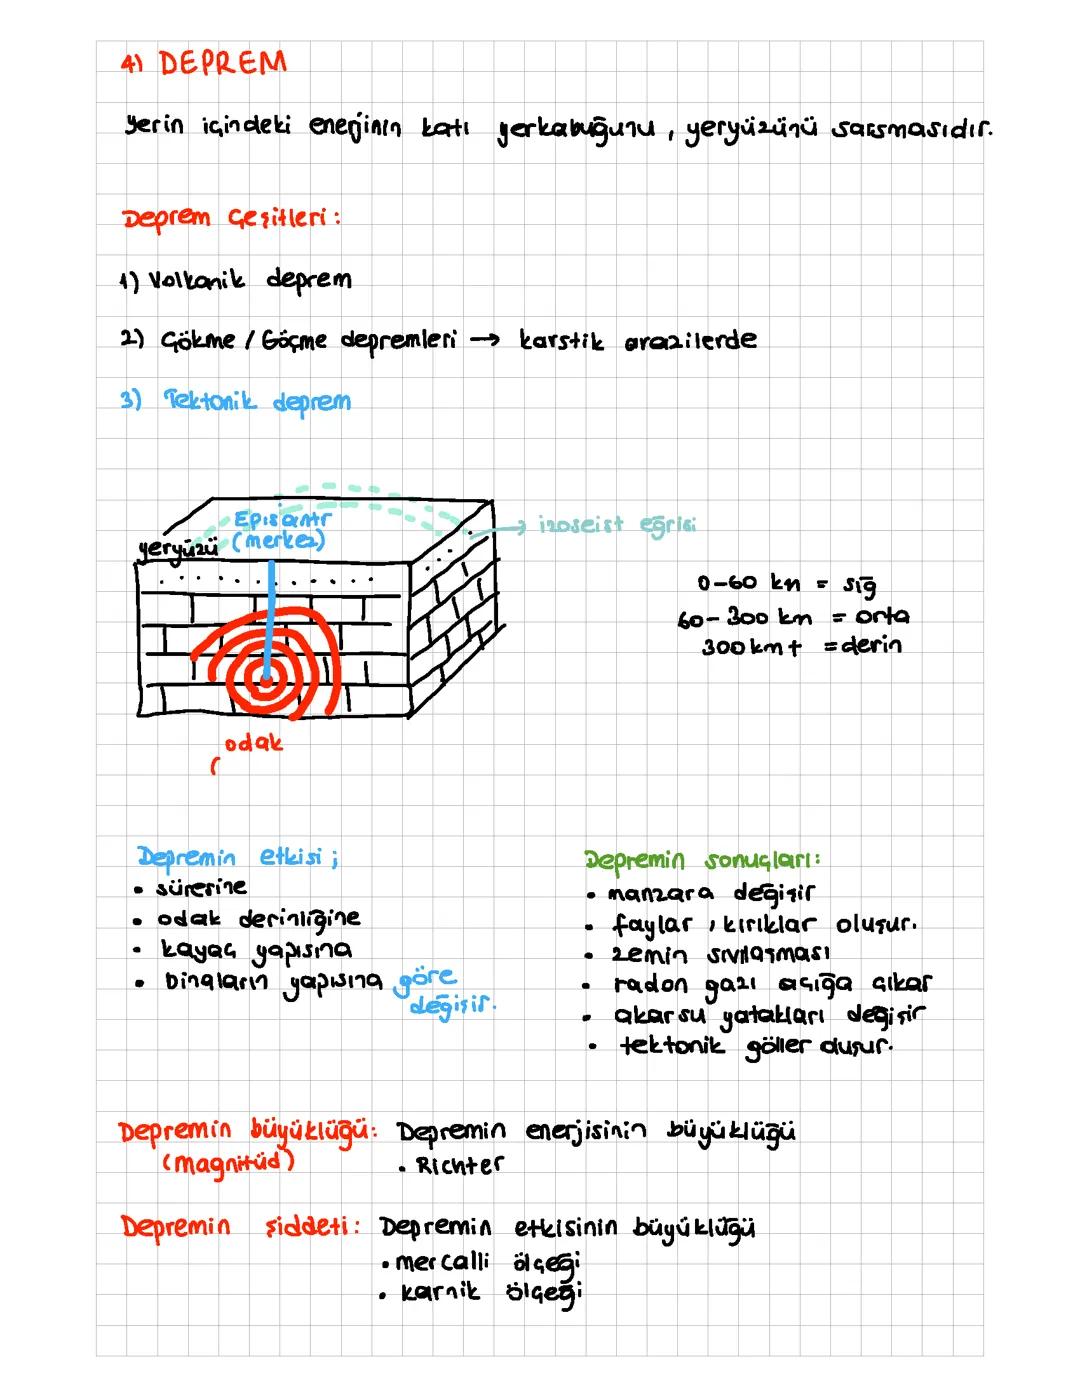 4) DEPREM
Yerin içindeki enerjinin katı yerkabuğunu, yeryüzünü sarsmasıdır.
Deprem Çeşitleri:
1) Volkanik deprem
2) Çökme / Göçme depremleri → karstik arazilerde
3) Tektonik deprem
Episantr
(merkez)
yeryüzü
→ izoseist eğrisi
0-60 km = sığ
60-300 km = orta
300 km + = derin
odak
(
Depremin etkisi ;
• süresine
• odak derinliğine
• kayaç yapısına
• binaların yapısına göre
değişir.
Depremin sonuçları:
• manzara değişir
• faylar, kırıklar oluşur.
• zemin sıvılaşması
• radon gazı açığa çıkar
• akarsu yatakları değişir
• tektonik göller oluşur.
Depremin büyüklüğü: Depremin enerjisinin büyüklüğü
(magnitüd)
• Richter
Depremin şiddeti: Depremin etkisinin büyüklüğü
• mercalli ölçeği
• karnik ölçeği